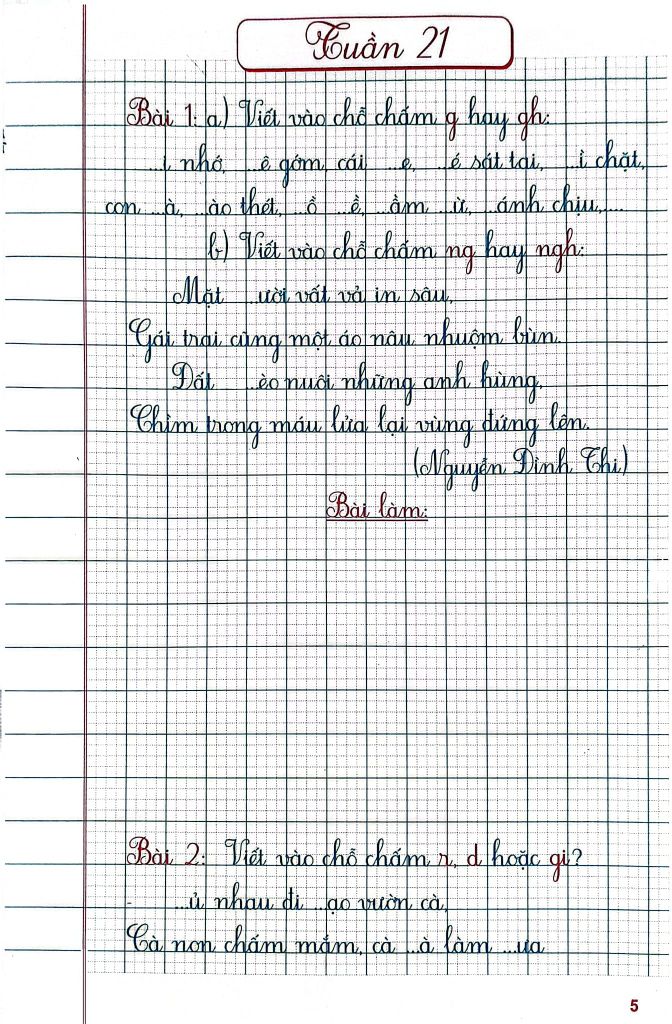 Tuần 21
Bài 1: a) Viết vào chỗ chấm g hay gh:
...i nhớ, ...ê gớm, cái ...e, ...é sát tai, ...ì chặt,
con ...à, ...ào thét, ...ồ ...ề, ...ầm ...ừ, ...ánh chịu,...
b) Viết vào chỗ chấm ng hay ngh:
Mặt ...ười vất vả in sâu,
Gái trai cũng một áo nâu nhuộm bùn.
Đất ...èo nuôi những anh hùng,
Chìm trong máu lửa lại vùng đứng lên.
(Nguyễn Đình Thi)
Bài làm:
Bài 2: Viết vào chỗ chấm r, d hoặc gi?
- ...ủ nhau đi ...ạo vườn cà,
Cà non chấm mắm, cà ...à làm ...ưa
5